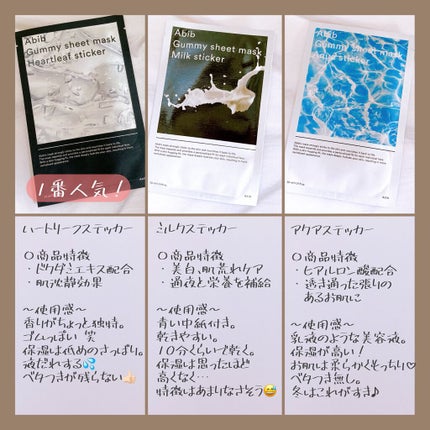 Abib
Gummy sheet mask
Heartleaf sticker
1番人気！
Abib
Gummy sheet mask
Milk sticker
Abib
Gummy sheet mask
Aqua sticker
ハートリーフステッカー
○商品特徴
・ドクダミエキス配合
・肌沈静効果
～使用感～
香りがちょっと独特。
ゴムっぽい 笑
保湿は低めのさっぱり。
液だれする💦
ベタつきが残らない👍🏻
ミルクステッカー
○商品特徴
・美白、肌荒れケア
・過夜と栄養を補給
～使用感～
青い中紙付き。
乾きやすい。
10分くらいで乾く。
保湿は思ったほど
高くなく…
特徴はあまりなさそう😅
アクアステッカー
○商品特徴
・ヒアルロン酸配合
・透き通った張りの
あるお肌に
～使用感～
乳液のような美容液。
保湿が高い！
お肌は柔らかくもっちり♡
ベタつき無し。
冬はこれがすき♪